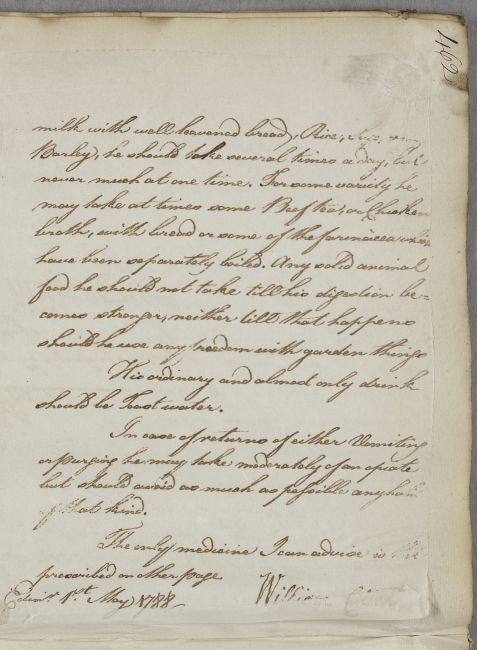 1162
milk with well leavened bread, Rice, Sego, or
Barley, he should take several times a day, but
never much at one time. For some variety he
may take at times some Beef tea, or Chicken
broth, with bread or some of the farinacea which
have been separately boiled. Any solid animal
food he should not take till his digestion be=
comes stronger, neither till that happens
should he use any freedom with garden things
His ordinary and almost only drink
should be Toast water.
In case of returns of either Vomiting
or purging he may take moderately of an opiate
but should avoid as much as possible any
of that kind.
The only medicine I can advise is
prescribed on other page
William
Edinr. 1st. May 1788